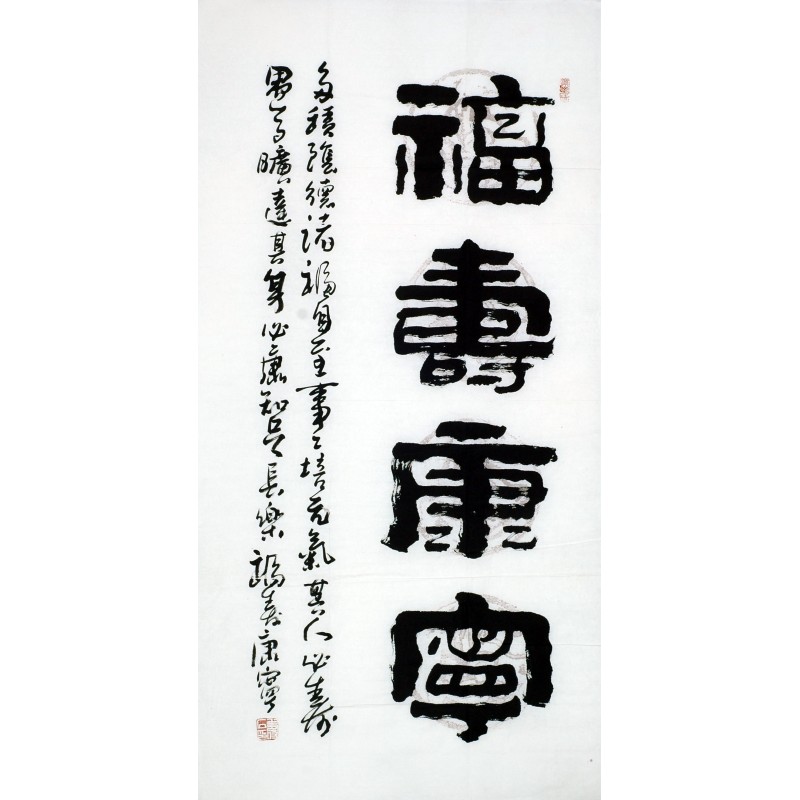 福壽康寧
多積陰德諸福自至事々培元氣其人必壽
曠達其身必康知足長樂福壽康寧